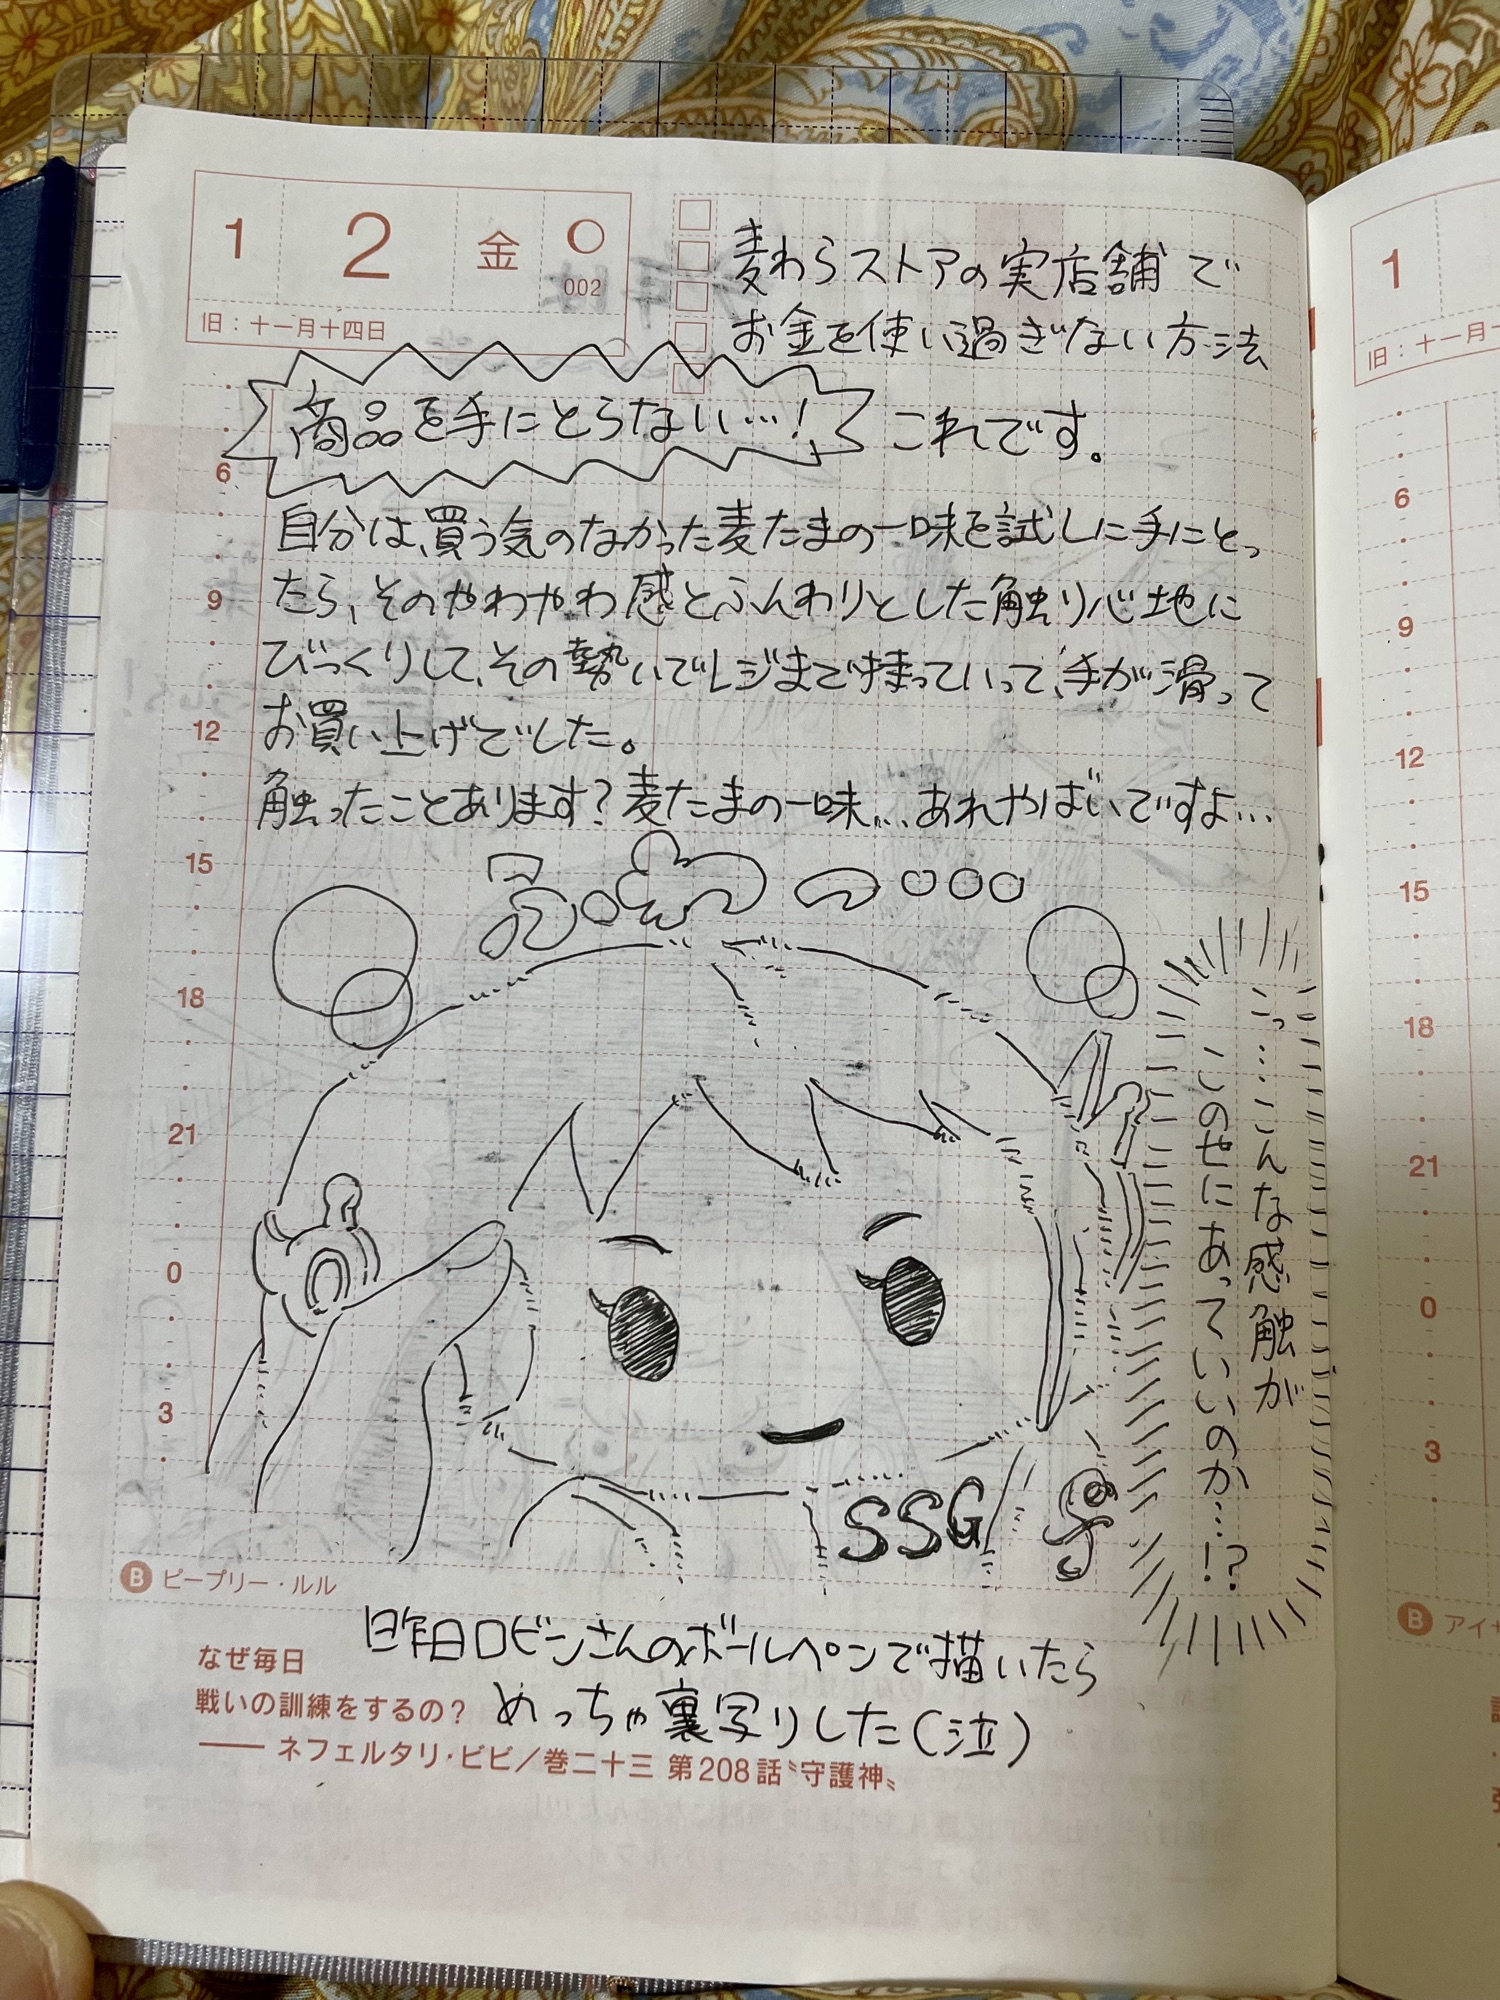 1 2 金
002
旧:十一月十四日
麦わらストアの実店舗で
お金を使い過ぎない方法
商品を手にとらない…! これです。
自分は、買う気のなかった麦たまの一味を試しに手にとっ
たら、そのやわやわ感とふんわりとした触り心地に
びっくりして、その勢いでレジまで持っていって、手が滑って
お買い上げでした。
触ったことあります?麦たまの一味…あれやばいですよ…
6
9
12
15
18
21
0
3
こっ…こんな感触が
このせにあっていいのか…!?
SSG
B ピープリー・ルル
昨日ロビンさんのボールペンで描いたら
めっちゃ裏写りした(泣)
なぜ毎日
戦いの訓練をするの?
── ネフェルタリ・ビビ/巻二十三 第208話〝守護神〟
1
旧:十一月十
6
9
12
15
18
21
0
3
B アイ